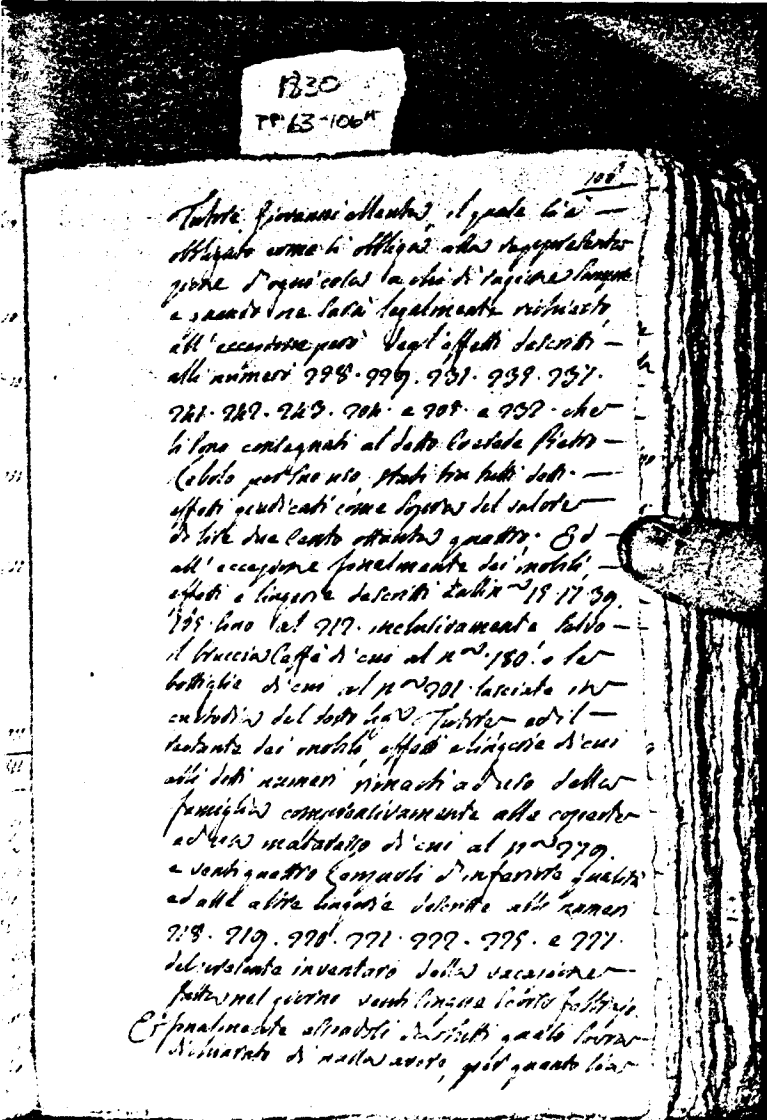 1830
PP 63-106
100
Tutore Giovanni il quale si è
obligato come si obliga alla rappresenta
zione d'ogni cosa a chi di ragione sempre
e quando ne sarà legalmente richiesto
all'eccezione però degl'effetti descritti
alli numeri 228. 229. 231. 232. 237.
241. 242. 243. 204. e 205. e 232. che
si sono consegnati al detto Pietro
per suo uso, stati tra tutti detti
effetti giudicati come sopra del valore
di lire due Cento ottanta quattro. Ed
all'eccezione finalmente dei mobili
effetti e lingerie descritti 15. 17. 39.
sino al 217. inclusivamente salvo
il bruccia Caffè di cui al nº 180. e le
bottiglie di cui al nº 201. lasciate in
custodia del detto Tutore ed il
restante dei mobili, effetti e lingerie di cui
alli detti numeri rimasti ad uso della
famiglia comprensivamente alle coperte
ed un matarasso di cui al nº 279.
e venti quattro Lenzuoli d'inferiore qualità
ed alle altre lingerie descritte alli numeri
218. 219. 220. 221. 222. 225. e 227.
del presente inventaro della vacazione
fatta nel giorno venti cinque scorso febbraio.
E finalmente
dichiarato di nulla avere, per quanto